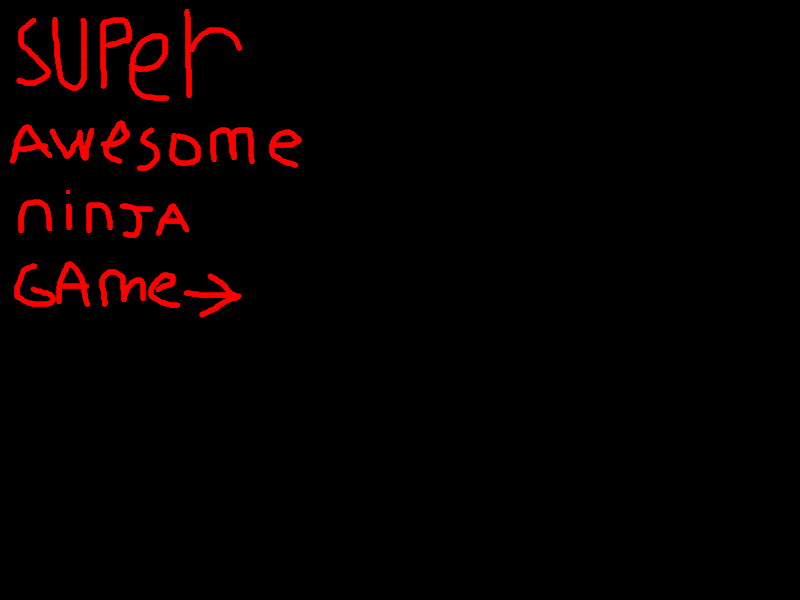 SUPer
AWesome
ninJA
GAme→